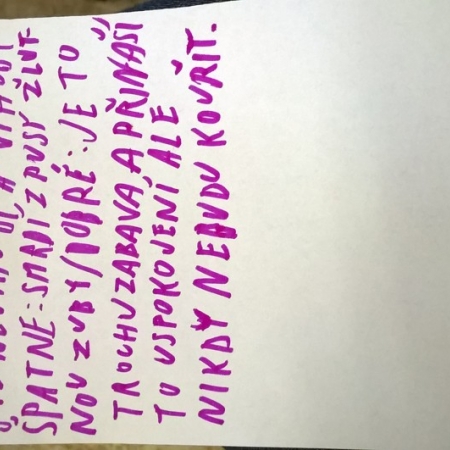 A
ŠPATNĚ: SMRDÍ Z PUSY ŽLUT-
NOU ZUBY/DOBRÉ: JE TO
TROCHU ZÁBAVA A PŘINÁŠÍ
TO USPOKOJENÍ ALE
NIKDY NEBUDU KOUŘIT.